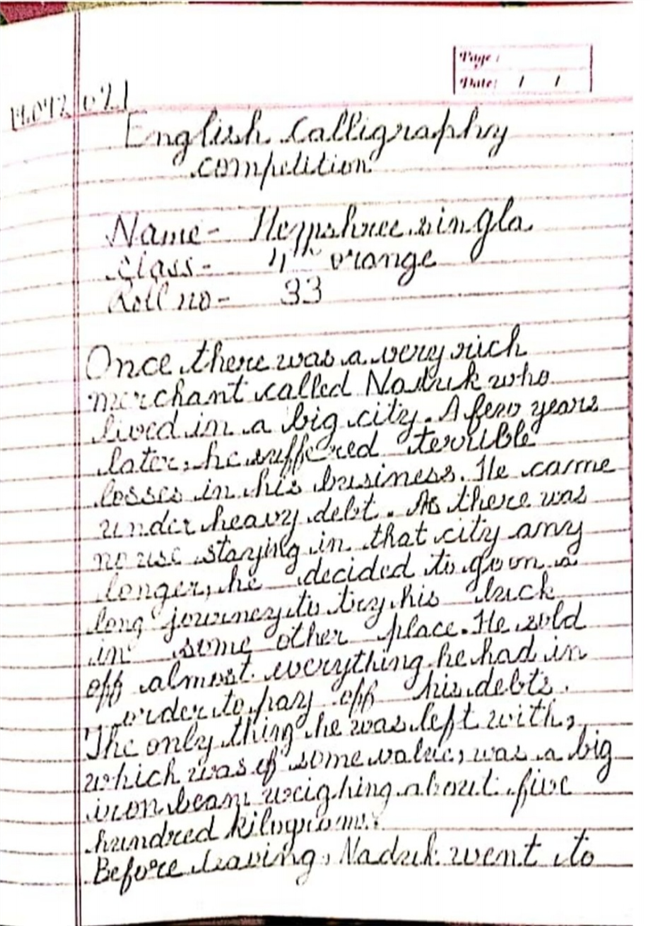 Page :
Date: / /
English Calligraphy
competition
Name- singla
Class- 4th orange
Roll no- 33
Once there was a very rich
merchant called Naduk who
lived in a big city. A few years
later, he suffered terrible
losses in his business. He came
under heavy debt. As there was
no use staying in that city any
longer, he decided to go on a
long journey to try his luck
in some other place. He sold
off almost everything he had in
order to pay off his debts.
The only thing he was left with,
which was of some value, was a big
iron beam weighing about five
hundred kilograms.
Before leaving, Naduk went to